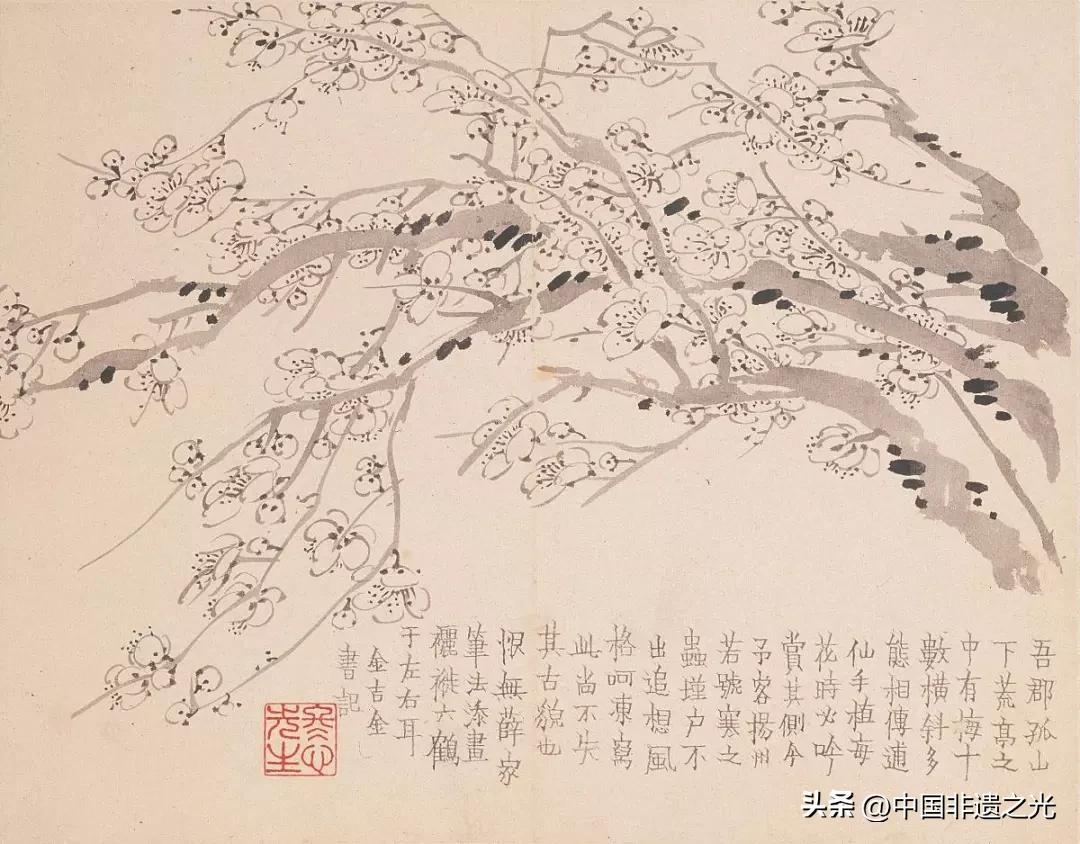 吾郡孤山
下荒亭之
中有梅十
數橫斜多
態相傳逋
仙手植每
花時必吟
賞其側今
予客揚州
若號寒之
蟲墐户不
出追想風
格呵凍寫
此尚不失
其古貌也
恨無薛家
筆法添畫
褷褷六鶴
于左右耳
金吉金
書記
寒心
先生
头条 @中国非遗之光